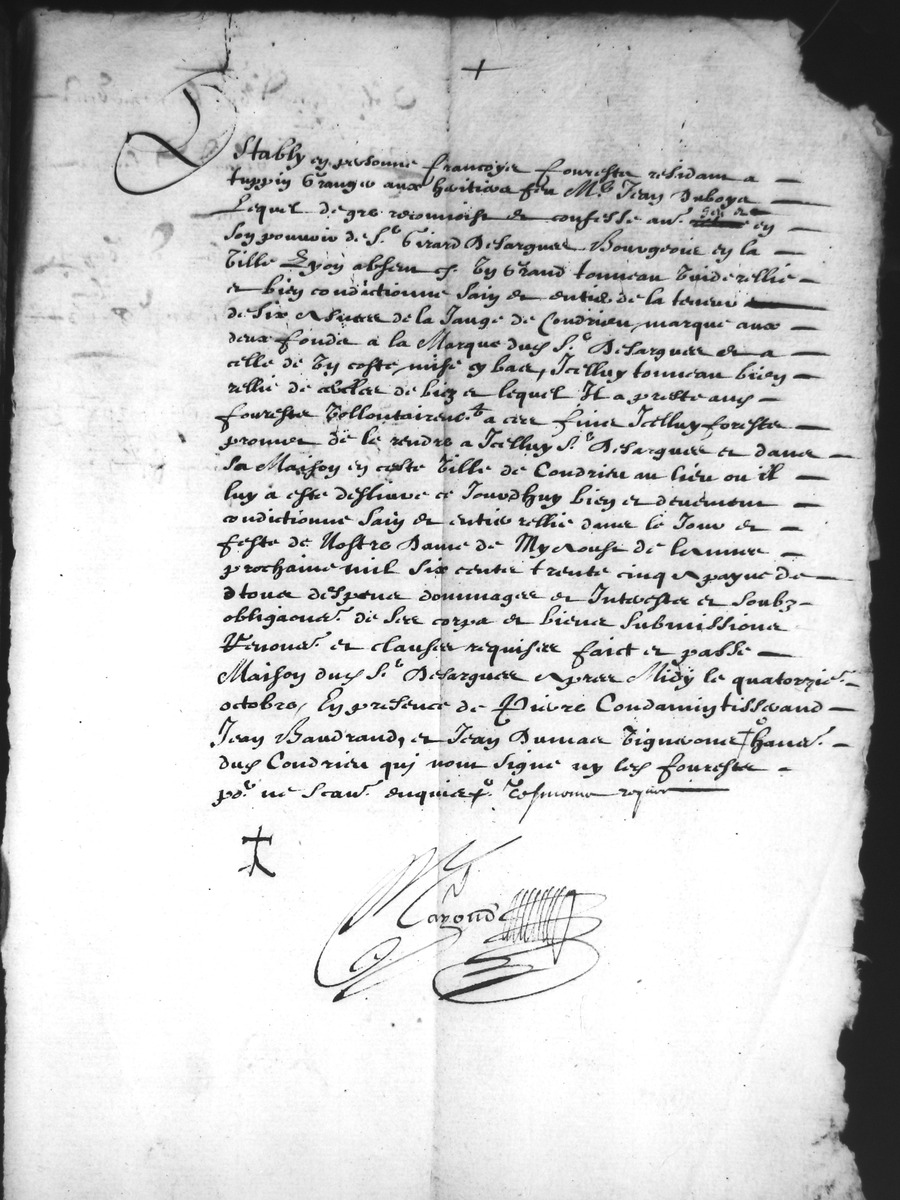 Estably en personne francoys foureste residant a
tuppin Granger aux heritiers feu Me Jean Duboys
Lequel de gre reconnoist et confesse en
son pouvoir de Sr Girard Desargues Bourgeois en la
Ville Lyon absent Un Grand tonneau Vuide rellie
et bien condictionne Sain et entier de la teneur
de Six asnees de la Jauge de Condrieu, marque aux
deux fonds a la Marque dud Sr Desargues et a
celle de Un coste, mise cy bas, Icelluy tonneau bien
rellie de cercles de lequel Il a preste aud
foureste Vollontairemt a ces fins Icelluy foreste
promet de le rendre a Icelluy Sr Desargues et dans
Sa Maison en ceste Ville de Condrieu au lieu ou il
luy a este deslivre ce Jourdhuy bien et deuement
condictionne Sain et entier rellie dans le Jour et
feste de Nostre Dame de Myaoust de lannee
prochaine mil six cents trente cinq a payne de
tous despens dommages et Interests et soubz
obligaons de Ses corps et biens Submissions
Renons et clauses requises faict et passe
Maison dud Sr Desargues Apres Midy le quatorzie
octobre, En presence de Pierre Condamin tisserand
Jean Baudrand, et Jean Dumas Vignerons hans
dud Condrieu qui nont signe ny led foureste
por ne Scavr enquis